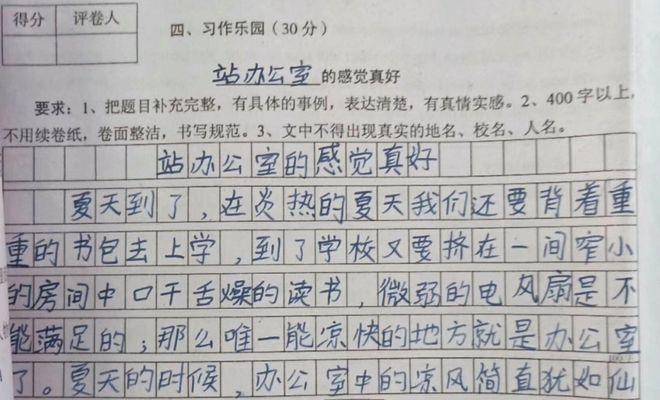 得分 评卷人
四、习作乐园（30分）
站办公室的感觉真好
要求：1、把题目补充完整，有具体的事例，表达清楚，有真情实感。2、400字以上，
不用续卷纸，卷面整洁，书写规范。3、文中不得出现真实的地名、校名、人名。
站办公室的感觉真好
夏天到了，在炎热的夏天我们还要背着重
重的书包去上学，到了学校又要挤在一间窄小
的房间中口干舌燥的读书，微弱的电风扇是不
能满足的；那么唯一能凉快的地方就是办公室
了。夏天的时候，办公室中的凉风简直犹如仙